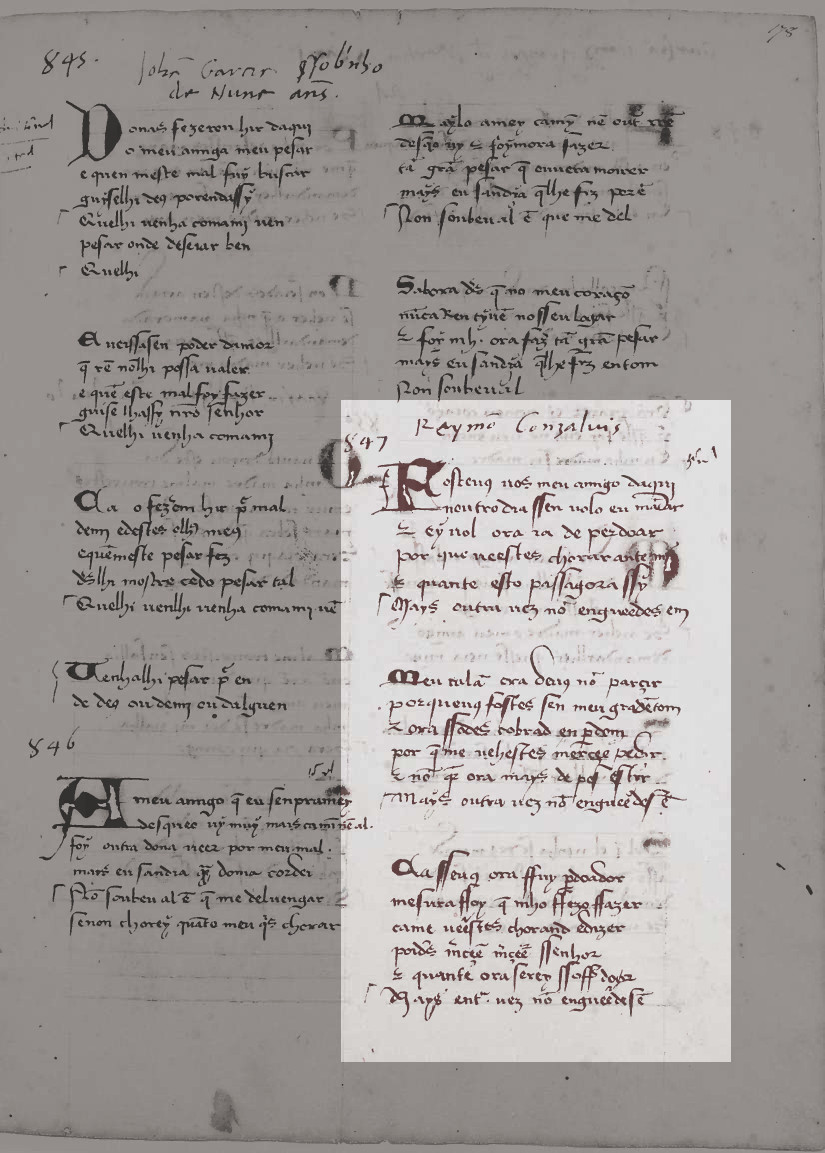 845.
Joh͂a Garcia sobrinho
de Nuno an̄s.
Donas fezeron hir daqui
o meu amigo meu pesar
e quen meste mal fuy buscar
guyselhi deꝯ
Quelhi uenha comami uen
pesar onde deseiar ben
Quelhi
q̄ rē nōlhi possa ualer
e quē este mal foy fazer
guise lhassy nr̄o senhor
Quelhi uenha comami
Ca o fezerem hir pᷓ mal
equēmeste pesar fez
dꝰs lhi mostre cedo pesar tal
Quelhi uenlhi uenha comami uē
Uenhalhi pesar pᷓ en
de deꝯ ou demi ou dalguen
846
A meu amigo q̄ eu senpramey
desqueo uy muy mais camī nē al.
foy outra dona ueer por meu mal.
mays eu sandia
Nō soubeu al ē q̄ me deluengar
senon chorey quāto meu q̄s chorar
Maylo amey camȳ nē out̄ rrē
tā grā pesar q̄ enueta morrer
mays eu sandia q̄lhe fiz
Non soubeu al ē que me del
Sabora dꝰs q̄ no meu coraçō
nūca Ren tyuē no sseu logar
mays eu sandia q̄lhe fiz entom
Non soubeu al
Reymō Gonzaluis
847
Fosteuꝯ uos meu amigo daqui
noutro dia ssen uolo eu mādar
ꝛ ey uol ora ia de perdoar
por que ueestes chorar ante mī
ꝛ quante esto passagora ssy
Mays outra uez nō engueedes em
Meu talā era deuꝯ nō parcir
porqueuꝯ fostes sen meu gradētom
ꝛ ora ssodes cobrad en ꝑdom
por q̄ me uehestes mercee pedir.
ꝛ nō q̄r ora mays de pos
Mays outra uez nō engueedes ē
Ca sseuꝯ ora ffuy ꝑdoador
mesura ffoy q̄ mho ffezo ffazer
came ueestes chorand edizer
poidꝰs m̄cee m̄cee ssenhor
ꝛ quante ora serey ssoffredor
Mays ent̄ uez nō engueedes ē